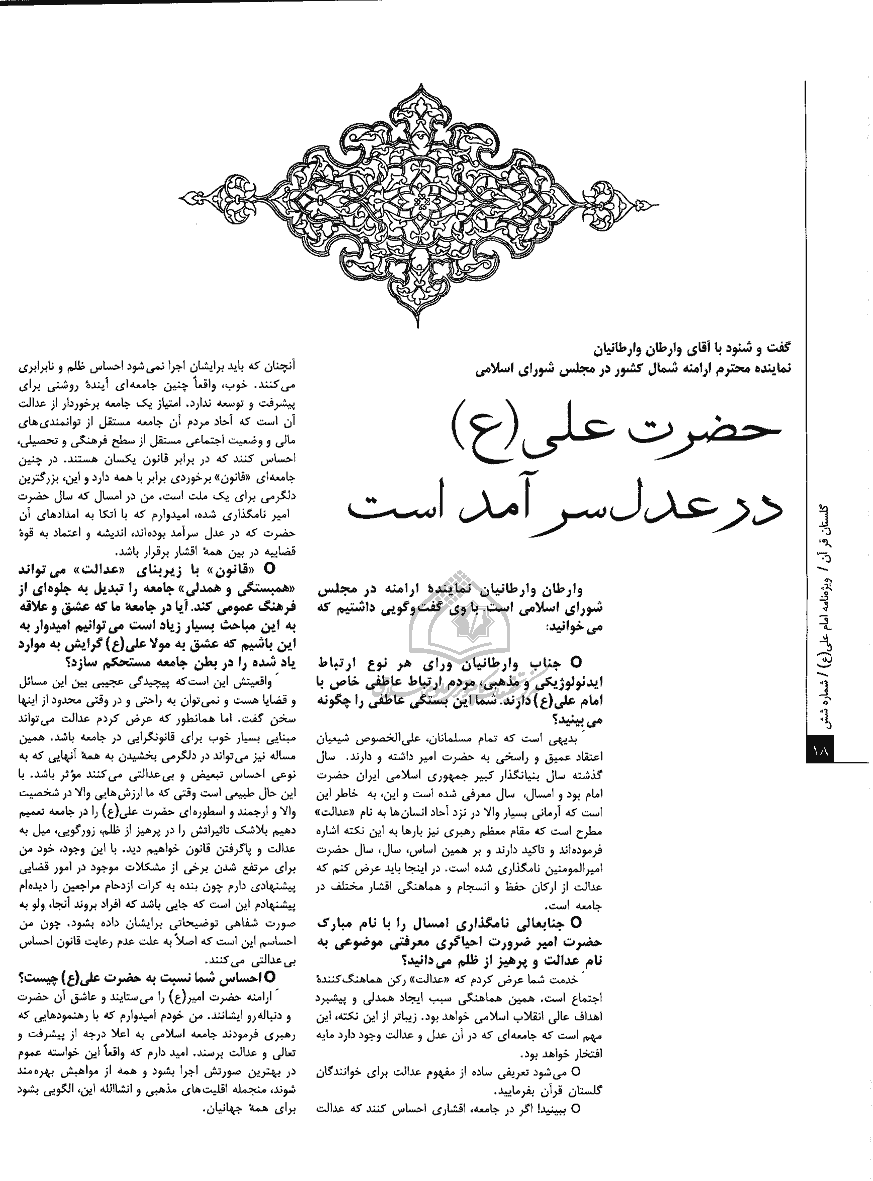 گفت و شنود با آقای وارطان وارطانیان
نماینده محترم ارامنه شمال کشور در مجلس شورای اسلامی
حضرت علی(ع)
در عدل سرآمد است
وارطان وارطانیان نمایندهٔ ارامنه در مجلس
شورای اسلامی است. با وی گفت‌وگویی داشتیم که
می‌خوانید:
O جناب وارطانیان ورای هر نوع ارتباط
ایدئولوژیکی و مذهبی، مردم ارتباط عاطفی خاص با
امام علی(ع) دارند. شما این بستگی عاطفی را چگونه
می‌بینید؟
بدیهی است که تمام مسلمانان، علی‌الخصوص شیعیان
اعتقاد عمیق و راسخی به حضرت امیر داشته و دارند. سال
گذشته سال بنیانگذار کبیر جمهوری اسلامی ایران حضرت
امام بود و امسال، سال معرفی شده است و این، به خاطر این
است که آرمانی بسیار والا در نزد آحاد انسان‌ها به نام «عدالت»
مطرح است که مقام معظم رهبری نیز بارها به این نکته اشاره
فرموده‌اند و تاکید دارند و بر همین اساس، سال، سال حضرت
امیرالمومنین نامگذاری شده است. در اینجا باید عرض کنم که
عدالت از ارکان حفظ و انسجام و هماهنگی اقشار مختلف در
جامعه است.
O جنابعالی نامگذاری امسال را با نام مبارک
حضرت امیر ضرورت احیاگری معرفتی موضوعی به
نام عدالت و پرهیز از ظلم می‌دانید؟
خدمت شما عرض کردم که «عدالت» رکن هماهنگ‌کنندهٔ
اجتماع است. همین هماهنگی سبب ایجاد همدلی و پیشبرد
اهداف عالی انقلاب اسلامی خواهد بود. زیباتر از این نکته، این
مهم است که جامعه‌ای که در آن عدل و عدالت وجود دارد مایه
افتخار خواهد بود.
O می‌شود تعریفی ساده از مفهوم عدالت برای خوانندگان
گلستان قرآن بفرمایید.
O ببینید! اگر در جامعه، اقشاری احساس کنند که عدالت
آنچنان که باید برایشان اجرا نمی‌شود احساس ظلم و نابرابری
می‌کنند. خوب، واقعاً چنین جامعه‌ای آیندهٔ روشنی برای
پیشرفت و توسعه ندارد. امتیاز یک جامعه برخوردار از عدالت
آن است که آحاد مردم آن جامعه مستقل از توانمندی‌های
مالی و وضعیت اجتماعی مستقل از سطح فرهنگی و تحصیلی،
احساس کنند که در برابر قانون یکسان هستند. در چنین
جامعه‌ای «قانون» برخوردی برابر با همه دارد و این، بزرگترین
دلگرمی برای یک ملت است. من در امسال که سال حضرت
امیر نامگذاری شده، امیدوارم که با اتکا به امدادهای آن
حضرت که در عدل سرآمد بوده‌اند، اندیشه و اعتماد به قوهٔ
قضاییه در بین همهٔ اقشار برقرار باشد.
O «قانون» با زیربنای «عدالت» می‌تواند
«همبستگی و همدلی» جامعه را تبدیل به جلوه‌ای از
فرهنگ عمومی کند. آیا در جامعهٔ ما که عشق و علاقه
به این مباحث بسیار زیاد است می‌توانیم امیدوار به
این باشیم که عشق به مولا علی(ع) گرایش به موارد
یاد شده را در بطن جامعه مستحکم سازد؟
واقعیتش این است‌که پیچیدگی عجیبی بین این مسائل
و قضایا هست و نمی‌توان به راحتی و در وقتی محدود از اینها
سخن گفت. اما همانطور که عرض کردم عدالت می‌تواند
مبنایی بسیار خوب برای قانونگرایی در جامعه باشد. همین
مساله نیز می‌تواند در دلگرمی بخشیدن به همهٔ آنهایی که به
نوعی احساس تبعیض و بی‌عدالتی می‌کنند مؤثر باشد. با
این حال طبیعی است وقتی که ما ارزش‌هایی والا در شخصیت
والا و ارجمند و اسطوره‌ای حضرت علی(ع) را در جامعه تعمیم
دهیم بلاشک تاثیراتش را در پرهیز از ظلم، زورگویی، میل به
عدالت و پاگرفتن قانون خواهیم دید. با این وجود، خود من
برای مرتفع شدن برخی از مشکلات موجود در امور قضایی
پیشنهادی دارم چون بنده به کرات ازدحام مراجعین را دیده‌ام
پیشنهادم این است که جایی باشد که افراد بروند آنجا، ولو به
صورت شفاهی توضیحاتی برایشان داده بشود. چون من
احساسم این است که اصلاً به علت عدم رعایت قانون احساس
بی‌عدالتی می‌کنند.
O احساس شما نسبت به حضرت علی(ع) چیست؟
ارامنه حضرت امیر(ع) را می‌ستایند و عاشق آن حضرت
و دنباله‌رو ایشانند. من خودم امیدوارم که با رهنمودهایی که
رهبری فرمودند جامعه اسلامی به اعلا درجه از پیشرفت و
تعالی و عدالت برسند. امید دارم که واقعاً این خواسته عموم
در بهترین صورتش اجرا بشود و همه از مواهبش بهره‌مند
شوند، منجمله اقلیت‌های مذهبی و انشاالله این، الگویی بشود
برای همهٔ جهانیان.
گلستان قرآن / ویژه‌نامه امام علی(ع) / شماره شش
۱۸